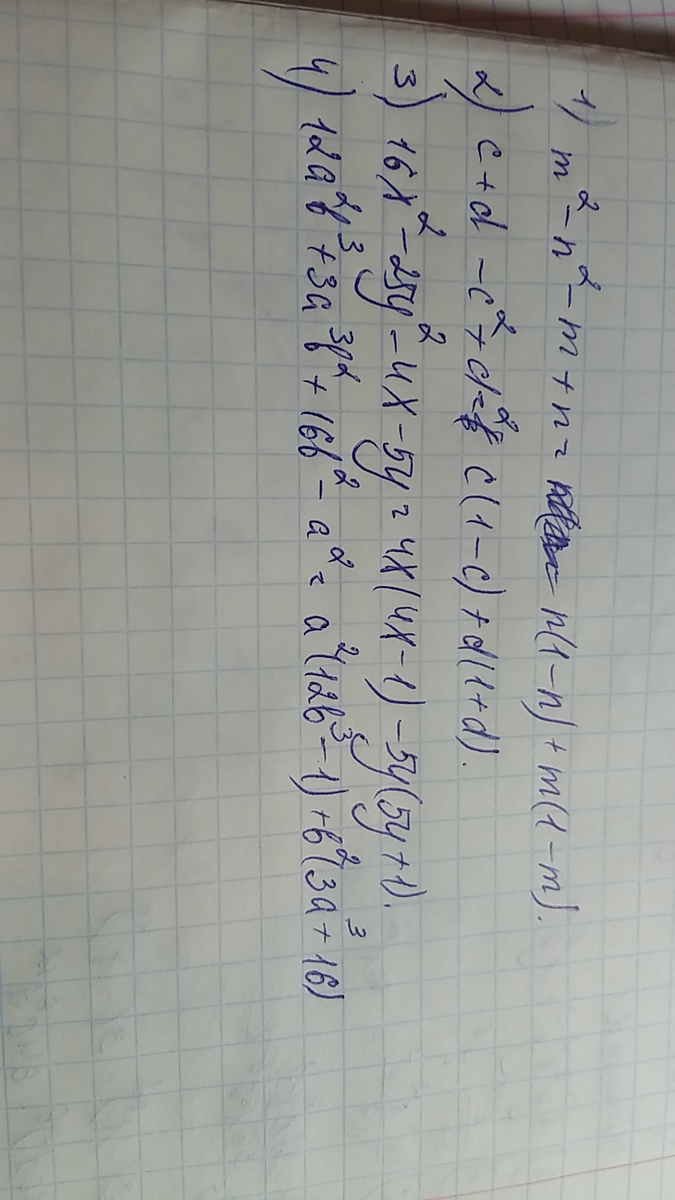 1) m² - n² - m + n = n(1 - n) + m(1 - m).
2) c + d - c² + d² = c(1 - c) + d(1 + d).
3) 16x² - 25y² - 4x - 5y = 4x(4x - 1) - 5y(5y + 1).
4) 12a²b³ + 3a³b² + 16b² - a² = a²(12b³ - 1) + b²(3a³ + 16)